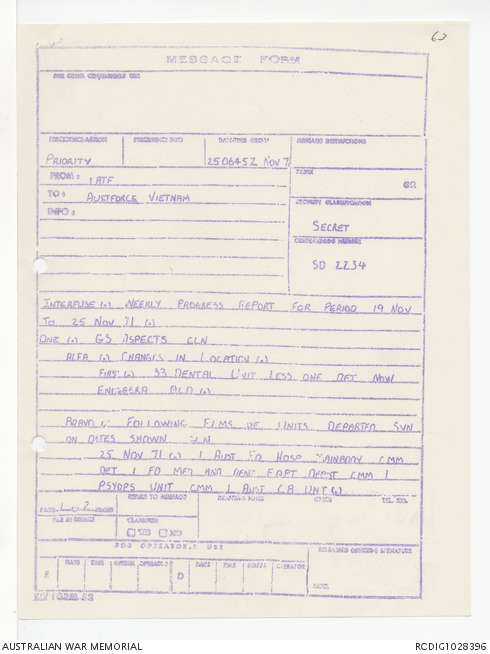 60
MESSAGE FORM
FOR COMM CEN/SIGNALS USE
PRECEDENCE-ACTION
PRECEDENCE-INFO
DATE-TIME GROUP
MESSAGE INSTRUCTIONS
PRIORITY
250645Z NOV 71
FROM: 1 ATF
PREFIX
GR
TO: AUSTFORCE VIETNAM
SECURITY CLASSIFICATION
INFO:
SECRET
ORIGINATORS NUMBER
SD 2234
INTERFUSE (.) WEEKLY PROGRESS REPORT FOR PERIOD 19 NOV
TO 25 NOV 71 (.)
ONE (.) GS ASPECTS CLN
ALFA (.) CHANGES IN LOCATION (.)
FIRST (.) 33 DENTAL UNIT LESS ONE DET NOW
BRAVO (.) FOLLOWING ELMS OF UNITS DEPARTED SVN
ON DATES SHOWN CLN
25 NOV 71 (.) 1 AUST FD HOSP MAINBODY CMM
DET 1 FD MED AND DENT EQPT DEPOT CMM 1
PSYOPS UNIT CMM 1 AUST CA UNIT (.)
PAGE 1 OF 2 PAGES
REFERS TO MESSAGE
DRAFTERS NAME
OFFICE
TEL. NO.
FILE REFERENCE
CLASSIFIED
YES NO
FOR OPERATOR'S USE
RELEASING OFFICERS SIGNATURE
R
DATE
TIME
SYSTEM
OPERATOR
D
DATE
TIME
SYSTEM
OPERATOR
RANK
AUSTRALIAN WAR MEMORIAL
RCDIG1028396